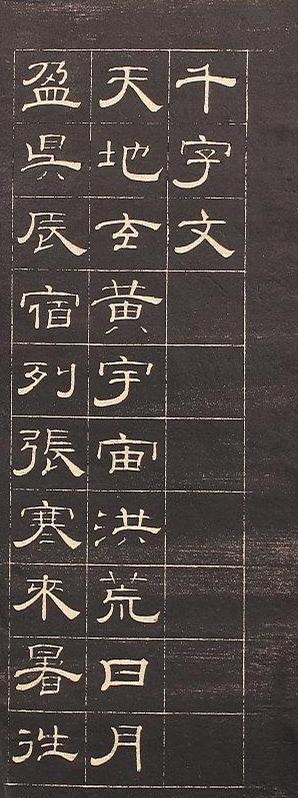 千字文
天地玄黃宇宙洪荒日月
盈昃辰宿列張寒來暑往